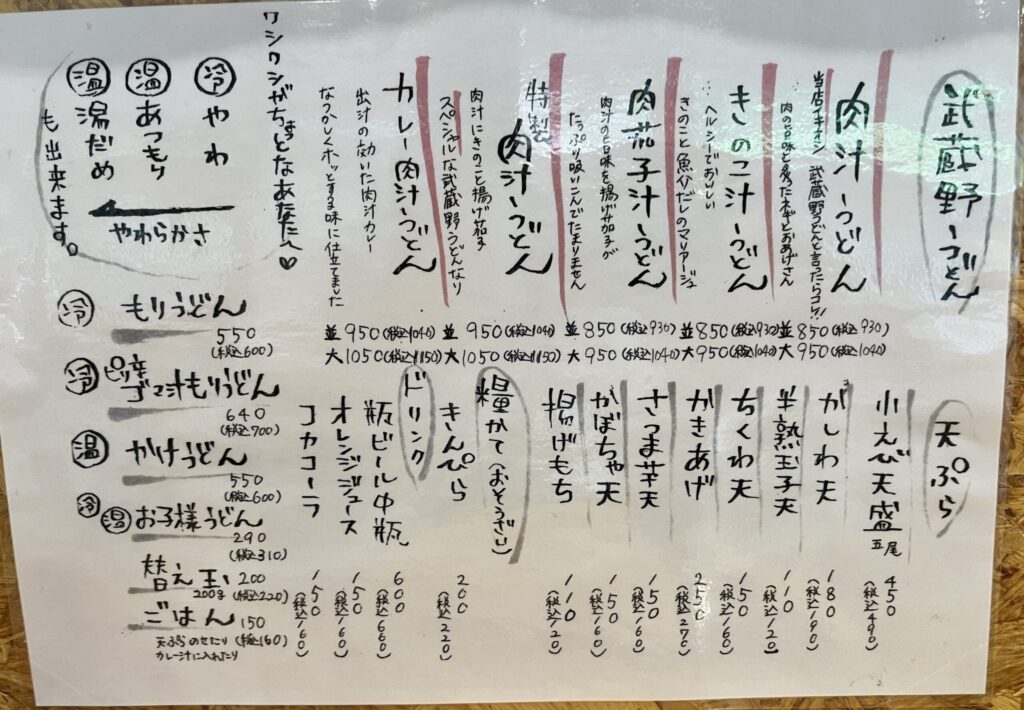 武蔵野うどん
肉汁うどん
当店イチオシ 武蔵野うどんと言ったらコレ!!
肉の旨味と炙ったネギとおあげさん
並 850(税込930)
大 950(税込1040)
きのこ汁うどん
ヘルシーでおいしい
きのこと魚介だしのマリアージュ
並 850(税込930)
大 950(税込1040)
肉茄子汁うどん
肉汁の旨味を揚げ茄子が
たっぷり吸いこんでたまりません
並 850(税込930)
大 950(税込1040)
特製肉汁うどん
肉汁にきのこと揚げ茄子
スペシャルな武蔵野うどんなり
並 950(税込1040)
大 1050(税込1150)
カレー肉汁うどん
出汁の効いた肉汁カレー
なつかしくホッとする味に仕立てました
並 950(税込1040)
大 1050(税込1150)
ワシワシがちょっとなあなたへ♡
冷 やわ
温 あつもり
温 湯だめ
も出来ます。
やわらかさ
冷 もりうどん
550
(税込600)
冷 ピリ辛
ゴマ汁もりうどん
640
(税込700)
温 かけうどん
550
(税込600)
冷 温 お子様うどん
290
(税込310)
替え玉 200
200g (税込220)
ごはん 150
天ぷらのせたり (税込160)
カレー汁に入れたり
天ぷら
小えび天盛 五尾 450(税込490)
かしわ天 180(税込190)
半熟玉子天 110(税込120)
ちくわ天 150(税込160)
かきあげ 250(税込270)
さつま芋天 150(税込160)
かぼちゃ天 150(税込160)
揚げもち 110(税込120)
糧かて(おそうざい)
きんぴら 200(税込220)
ドリンク
瓶ビール中瓶 600(税込660)
オレンジジュース 150(税込160)
コカコーラ 150(税込160)